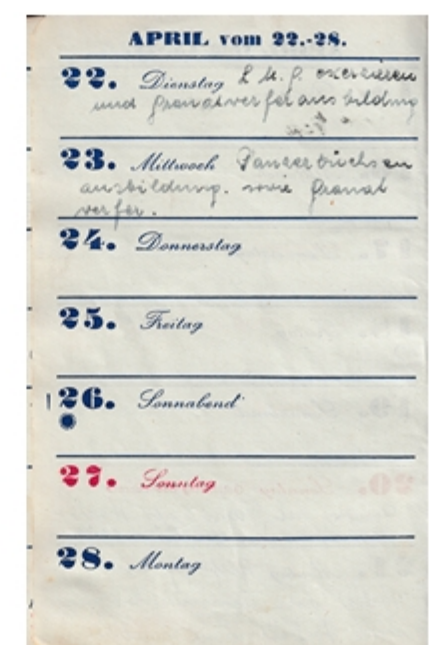 APRIL vom 22.-28.
22. Dienstag L M. G. exerzieren
und Granatwerferausbildung
23. Mittwoch Panzerbüchsen
ausbildung. sowie Granat
werfer.
24. Donnerstag
25. Freitag
26. Sonnabend
27. Sonntag
28. Montag